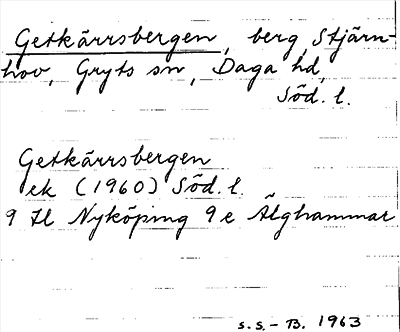 Getkärrsbergen, berg, Stjärn-
hov, Gryts sn, Daga hd,
Söd. l.
Getkärrsbergen
ek (1960) Söd. l.
9 H Nyköping 9 e Älghammar
S.S. - B. 1963